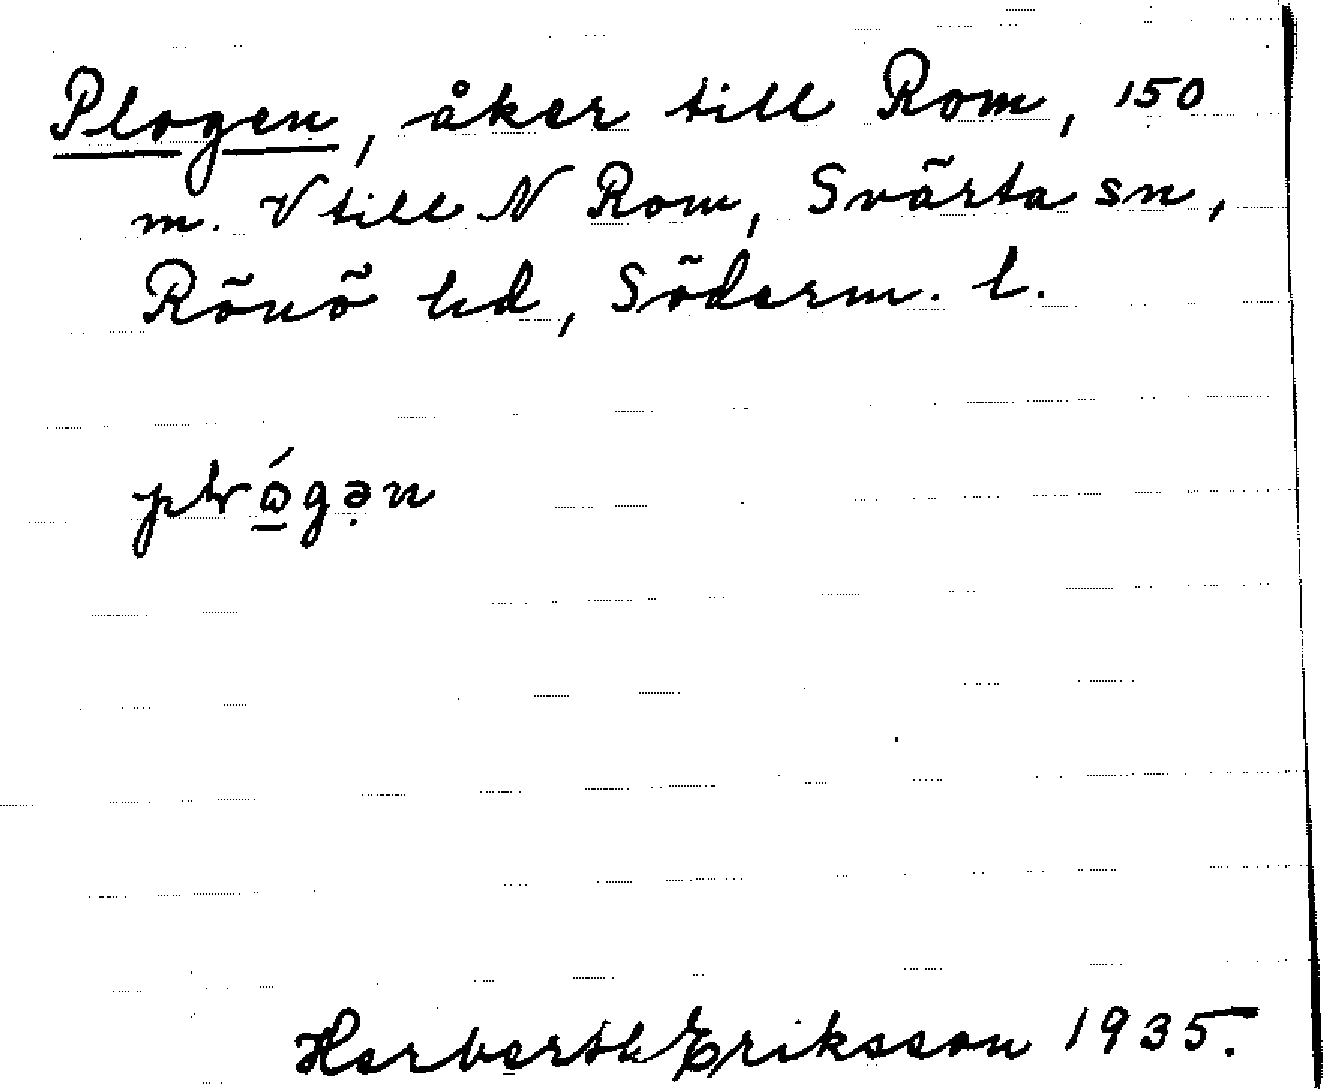 Plogen, åker till Rom, 150
m. V till N Rom, Svärta sn,
Rönö hd, Söderm. l.
Herberth Eriksson 1935.